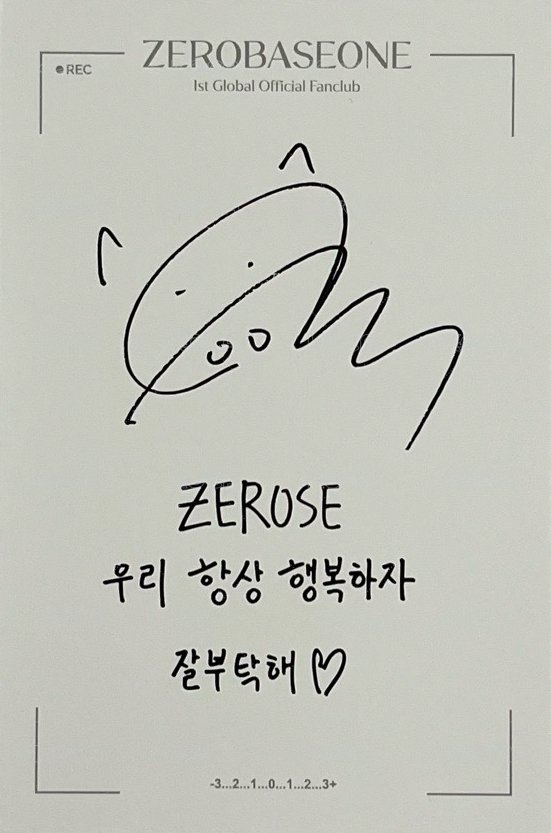 ZEROBASEONE
REC
1st Global Official Fanclub
ZEROSE
우리 항상 행복하자
잘부탁해♡
-3...2...1...0...1...2...3+